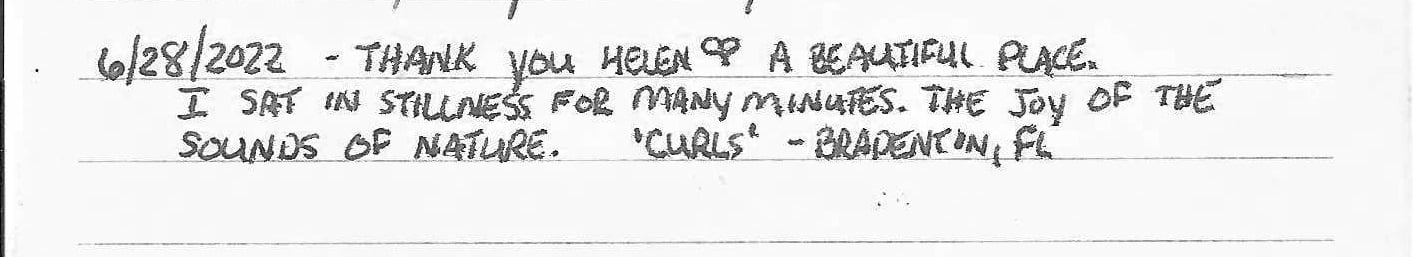 6/28/2022 - THANK you HELEN ♡ A BEAUTIFUL PLACE.
I SAT IN STILLNESS FOR MANY MINUTES. THE Joy OF THE
SOUNDS OF NATURE. 'CURLS' - BRADENTON, FL